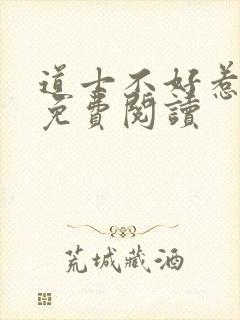 道士不好惹
免費閱讀
荒城藏酒